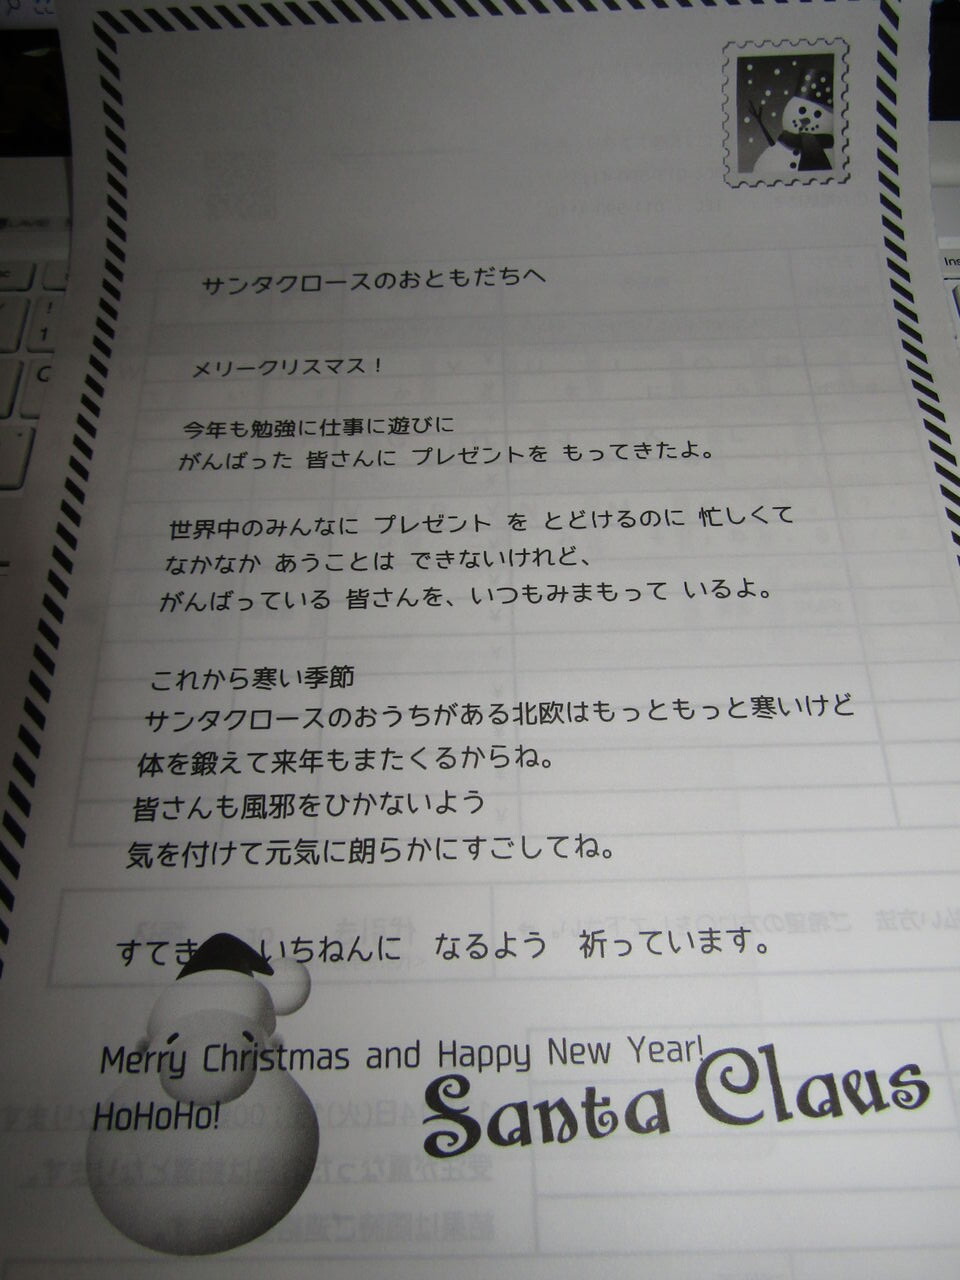 サンタクロースのおともだちへ
メリークリスマス!
今年も勉強に仕事に遊びに
がんばった 皆さんに プレゼントを もってきたよ。
世界中のみんなに プレゼント を とどけるのに 忙しくて
なかなか あうことは できないけれど、
がんばっている 皆さんを、いつもみまもって いるよ。
これから寒い季節
サンタクロースのおうちがある北欧はもっともっと寒いけど
体を鍛えて来年もまたくるからね。
皆さんも風邪をひかないよう
気を付けて元気に朗らかにすごしてね。
すてき いちねんに なるよう 祈っています。
Merry Christmas and Happy New Year!
HoHoHo!
Santa Claus